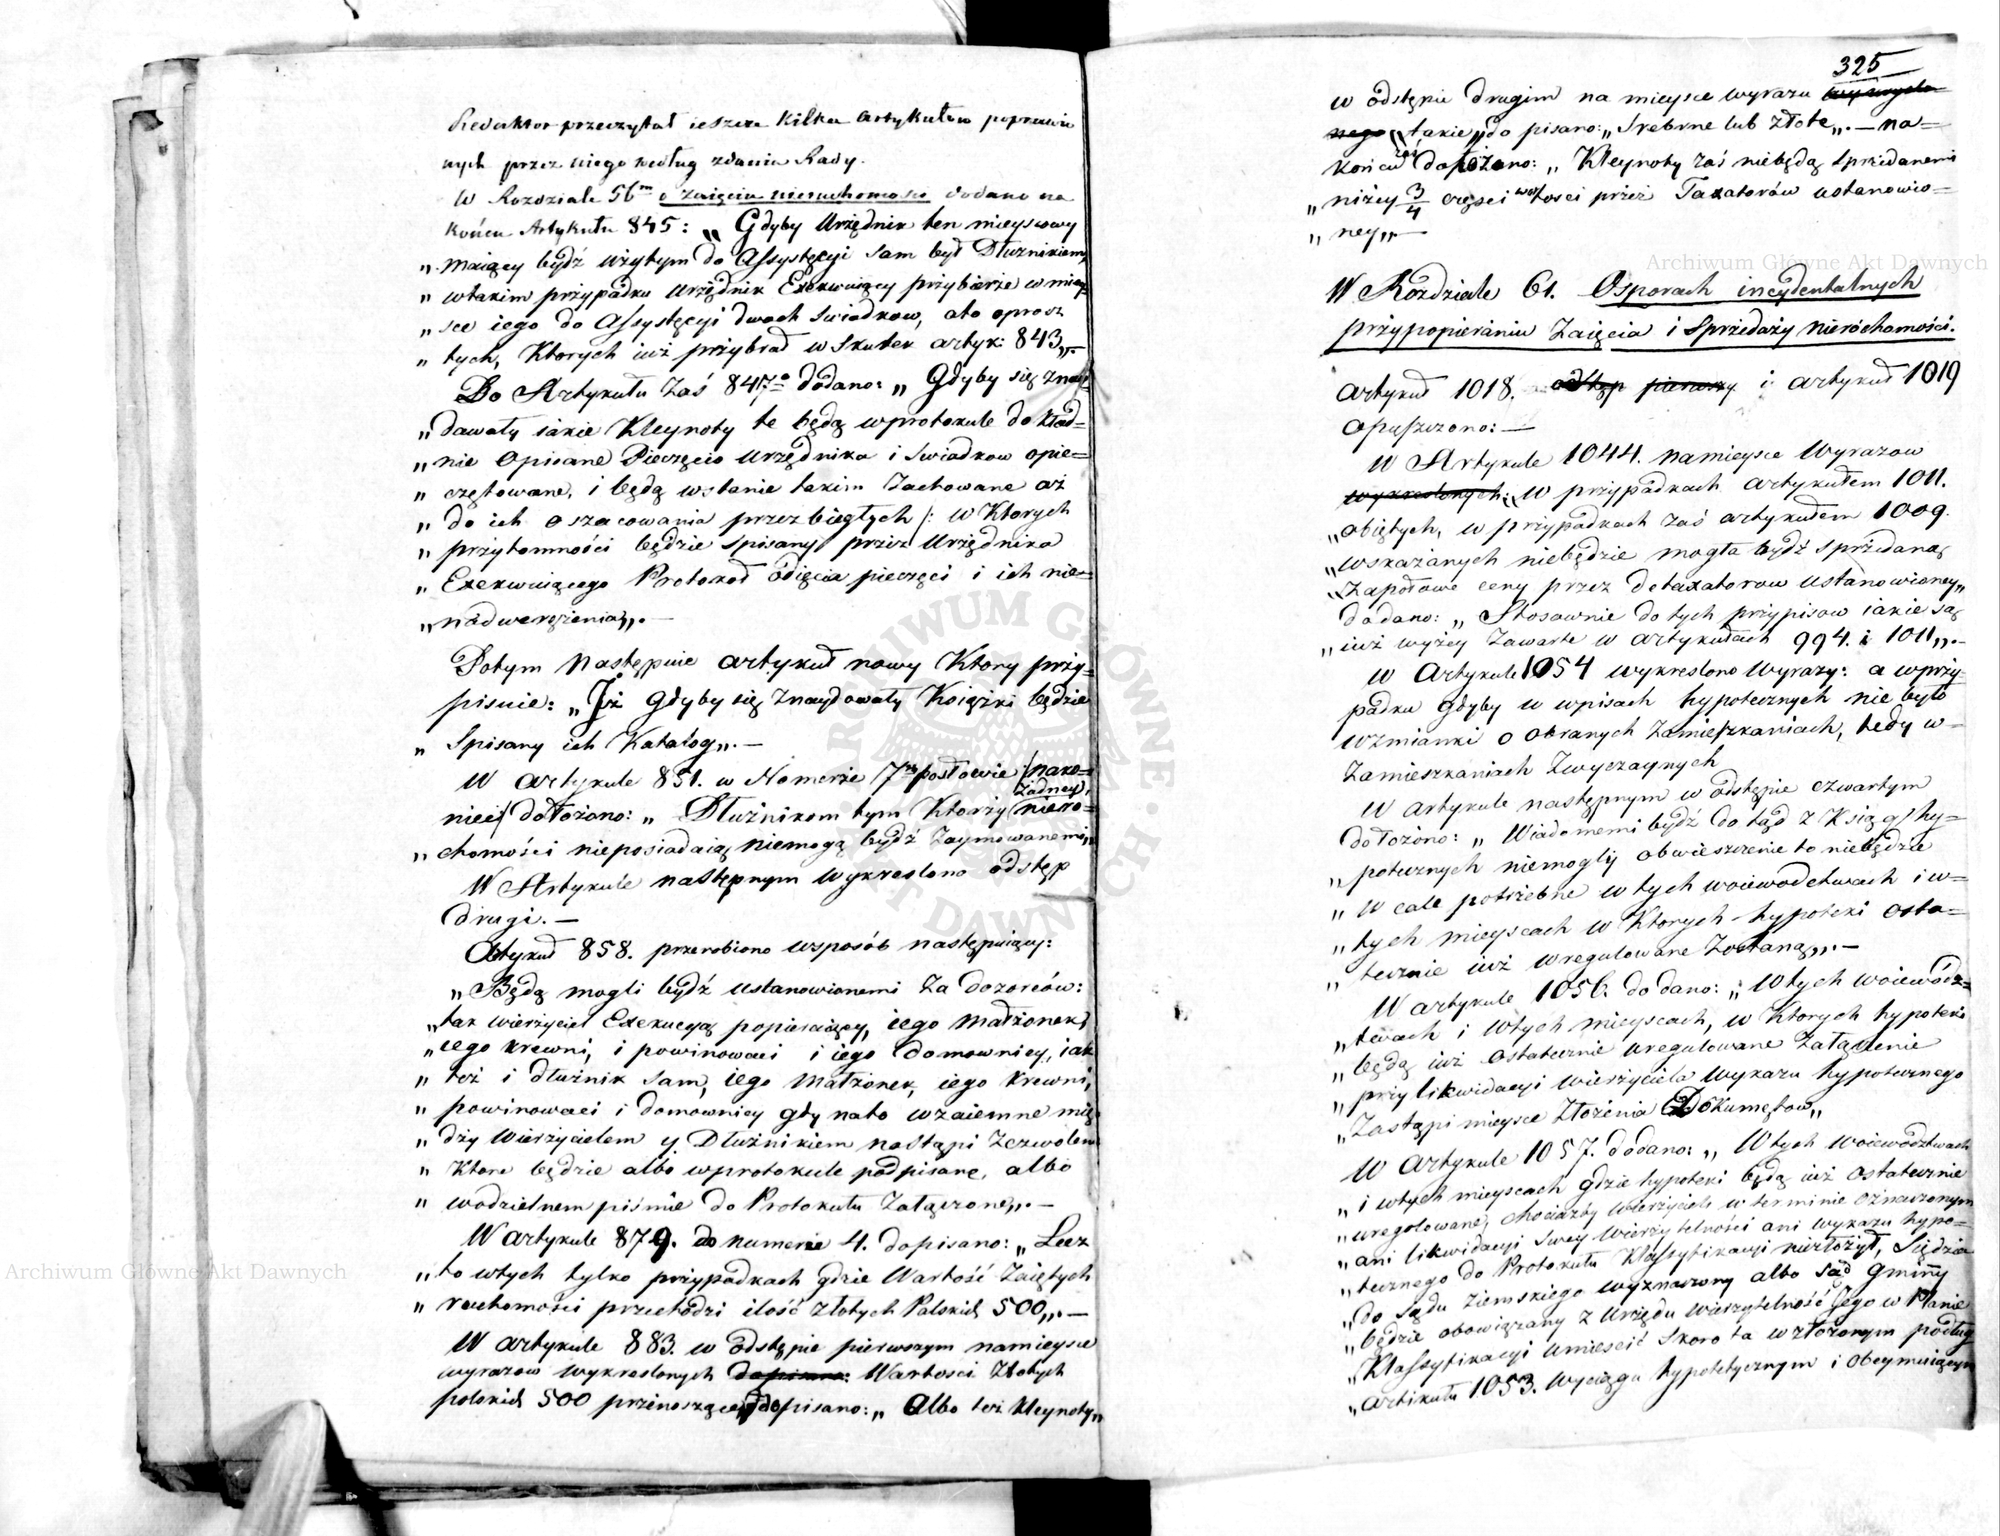 Redaktor przeczytał ieszcze kilka artykułow poprawio
nych przez niego według zdania Rady.
W Rozdziale 56m o zaięciu nieruchomości dodano na
końcu Artykułu 845: „Gdyby Urzędnik ten mieyscowy
„maiący bydź użytym do Assystęcyi sam był Dłużnikiem,
„wtakim przypadku Urzędnik Exekwuiący przybierze w miey-
„sce iego do Assystęcyi dwoch świadkow, ato oprosz
„tych, Ktorych iuż przybrał w skutek artyk: 843„.—
Do Artykułu zaś 847o dodano: „Gdyby się znay-
„dawały iakie Kleynoty te będą wprotokule dokład=
„nie opisane Pieczęcio Urzędnika i świadkow opie=
„częstowane, i będą wstanie takim zachowane aż
„do ich oszacowania przez biegłych /: w Ktorych
„przytomności będzie spisany przez Urzędnika
„Exekwuiącego Protokoł odięcia pieczęci i ich nie=
„nadwerężenia„.—
Potym następuie artykuł nowy Ktory przy=
pisuie: „Iż gdyby się znaydowały Książki będzie
„Spisany ich Katalog„.—
W artykule 851. w Nomerze 7m postowie /nako=
niec/ dołożono: „Dłużnikom tym Ktorzy żadney niero=
„chomości nieposiadaią niemogą bydź zaymowanemi„
W Artykule następnym wykreslono odstęp
drugi.—
Artykuł 858. przerobiono wsposób następuiący:
„Będą mogli bydź ustanowionemi za dozorców:
„tak wierzyciel Exekucyą popieraiący, iego małżonek,
„iego krewni, i powinowaci i iego domownicy, iak
„też i dłużnik sam, iego małżonek, iego krewni,
„powinowaci i domownicy gdy nato wzaiemne mię
„dzy wierzycielem y Dłużnikiem nastąpi zezwolen
„Ktore będzie albo wprotokule podpisane, albo
„wodzielnem piśmie do Protokułu załączone„.—
W artykule 879. do numerie 4. dopisano: „Lecz
„to wtych tylko przypadkach gdzie Wartość zaiętych
„ruchomości przechodzi ilość złotych Polskich 500„.—
W artykule 883. w odstępie pierwszym namieysce
wyrazow wykreslonych dopisano: Wartości złotych
polskich 500 przenoszącey dopisano: „Albo też kleynoty„
325
w odstępie drugim na mieysce wyrazu wymyślo=
nego „takie„ do pisano: „Srebrne lub złote„.— na=
końcu zaś dołożono: „Kleynoty zaś niebędą sprzedanemi
„niżey 3/4 części wartosci przez Taxatorów ustanowio=
„ney„—
W Rozdziale 61. Osporach incydentalnych
przypopieraniu Zaięcia i Sprzedaży nieróchomości.
artykuł 1018. odstęp pierwszy i artykuł 1019
opuszczono:—
W Artykule 1044. namieysce Wyrazow
wykreslonych: „W przypadkach artykułem 1011.
„obiętych, w przypadkach zaś artykułem 1009.
„wskazanych niebędzie mogła bydź sprzedaną
„zapołowe ceny przez detaxatorow ustanowioney„
dodano: „Stosownie do tych przypisow iakie są
„iuż wyżey zawarte w artykułach 994. i 1011„.—
W Artykule 1054 wykreslono wyrazy: a wprzy-
padku gdyby w wpisach hypotecznych nie było
wzmianki o obranych zamieszkaniach, tedy w=
zamieszkaniach zwyczaynych
W artykule następnym w odstępie czwartym
dołożono: „Wiadomemi bydź dotąd z Ksiąg hy=
„potecznych niemogły obwieszczenie to niebędzie
„w cale potrzebne w tych woiewodztwach i w=
„tych mieyscach w Ktorych hypoteki osta=
„tecznie iuż uregulowane zostaną„.—
W artykule 1056. dodano: „Wtych woiewódz=
„twach i wtych mieyscach, w Ktorych hypoteki
„będą iuż ostatecznie uregulowane załączenie
„przy likwidacyi wierzyciela wykazu hypotecznego
„Zastąpi mieysce złożenia Dokumętow„
W Artykule 1057. dodano: „Wtych woiewodztwach
„i wtych mieyscach gdzie hypoteki będą iuż ostatecznie
„uregulowane, chociażby wierzyciele w terminie oznaczonym
„ani likwidacyi swey wierzytelności ani wykazu hypo=
„tecznego do Protokułu Klassyfikacyi niezłożył, Sędzia
„do Sądu Ziemskiego wyznaczony albo Sąd Gminny
„będzie obowiązany z Urzędu wierzytelność Jego w Planie
„Klassyfikacyi umiescić skoro ta w złożonym podług
„artikułu 1053. wyciągu hypotetycznym i obeymuiącym
Archiwum Główne Akt Dawnych
Archiwum Główne Akt Dawnych
ARCHIWUM GŁÓWNE AKT DAWNYCH